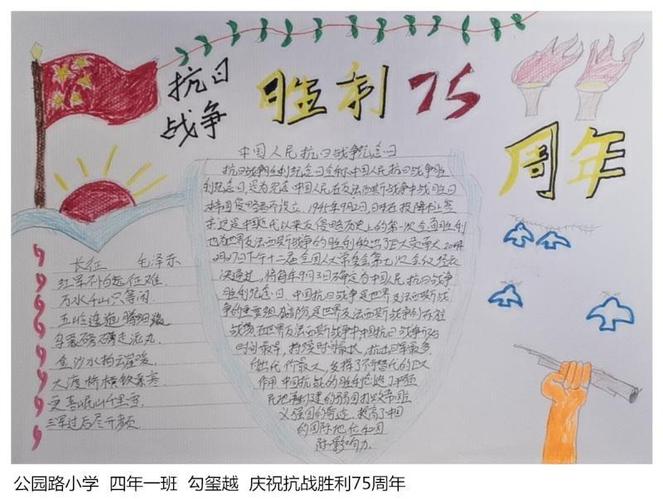 抗日
战争
胜利75
周年
中国人民抗日战争纪念日
抗日战争胜利纪念日全称中国人民抗日战争胜
利纪念日,是为纪念中国人民在反法西斯战争中战胜日
本帝国侵略者而设立。1945年9月2日,日本投降
这是中国近代以来反侵略历史上的第一次全面胜利
也为世界反法西斯战争的胜利做出了巨大贡献
月27日下午十二届全国人大常委会第七次会议经表
决通过,将每年9月3日确定为中国人民抗日战争
胜利纪念日。中国抗日战争是世界反法西斯战
争的重要组成部分是世界反法西斯战争的东方
战场在世界反法西斯战争中中国抗日战争开始
时间最早,持续时间最长,抗击日军最多
付出代价最大,发挥了不可替代的巨大
作用中国抗战的胜利
义强国的
的国际地位和国
际影响力。
长征 毛泽东
红军不怕远征难,
万水千山只等闲
五岭逶迤腾细浪
乌蒙磅礴走泥丸
金沙水拍云崖暖
大渡桥横铁索寒
更喜岷山千里雪
三军过后尽开颜
公园路小学 四年一班 勾玺越 庆祝抗战胜利75周年